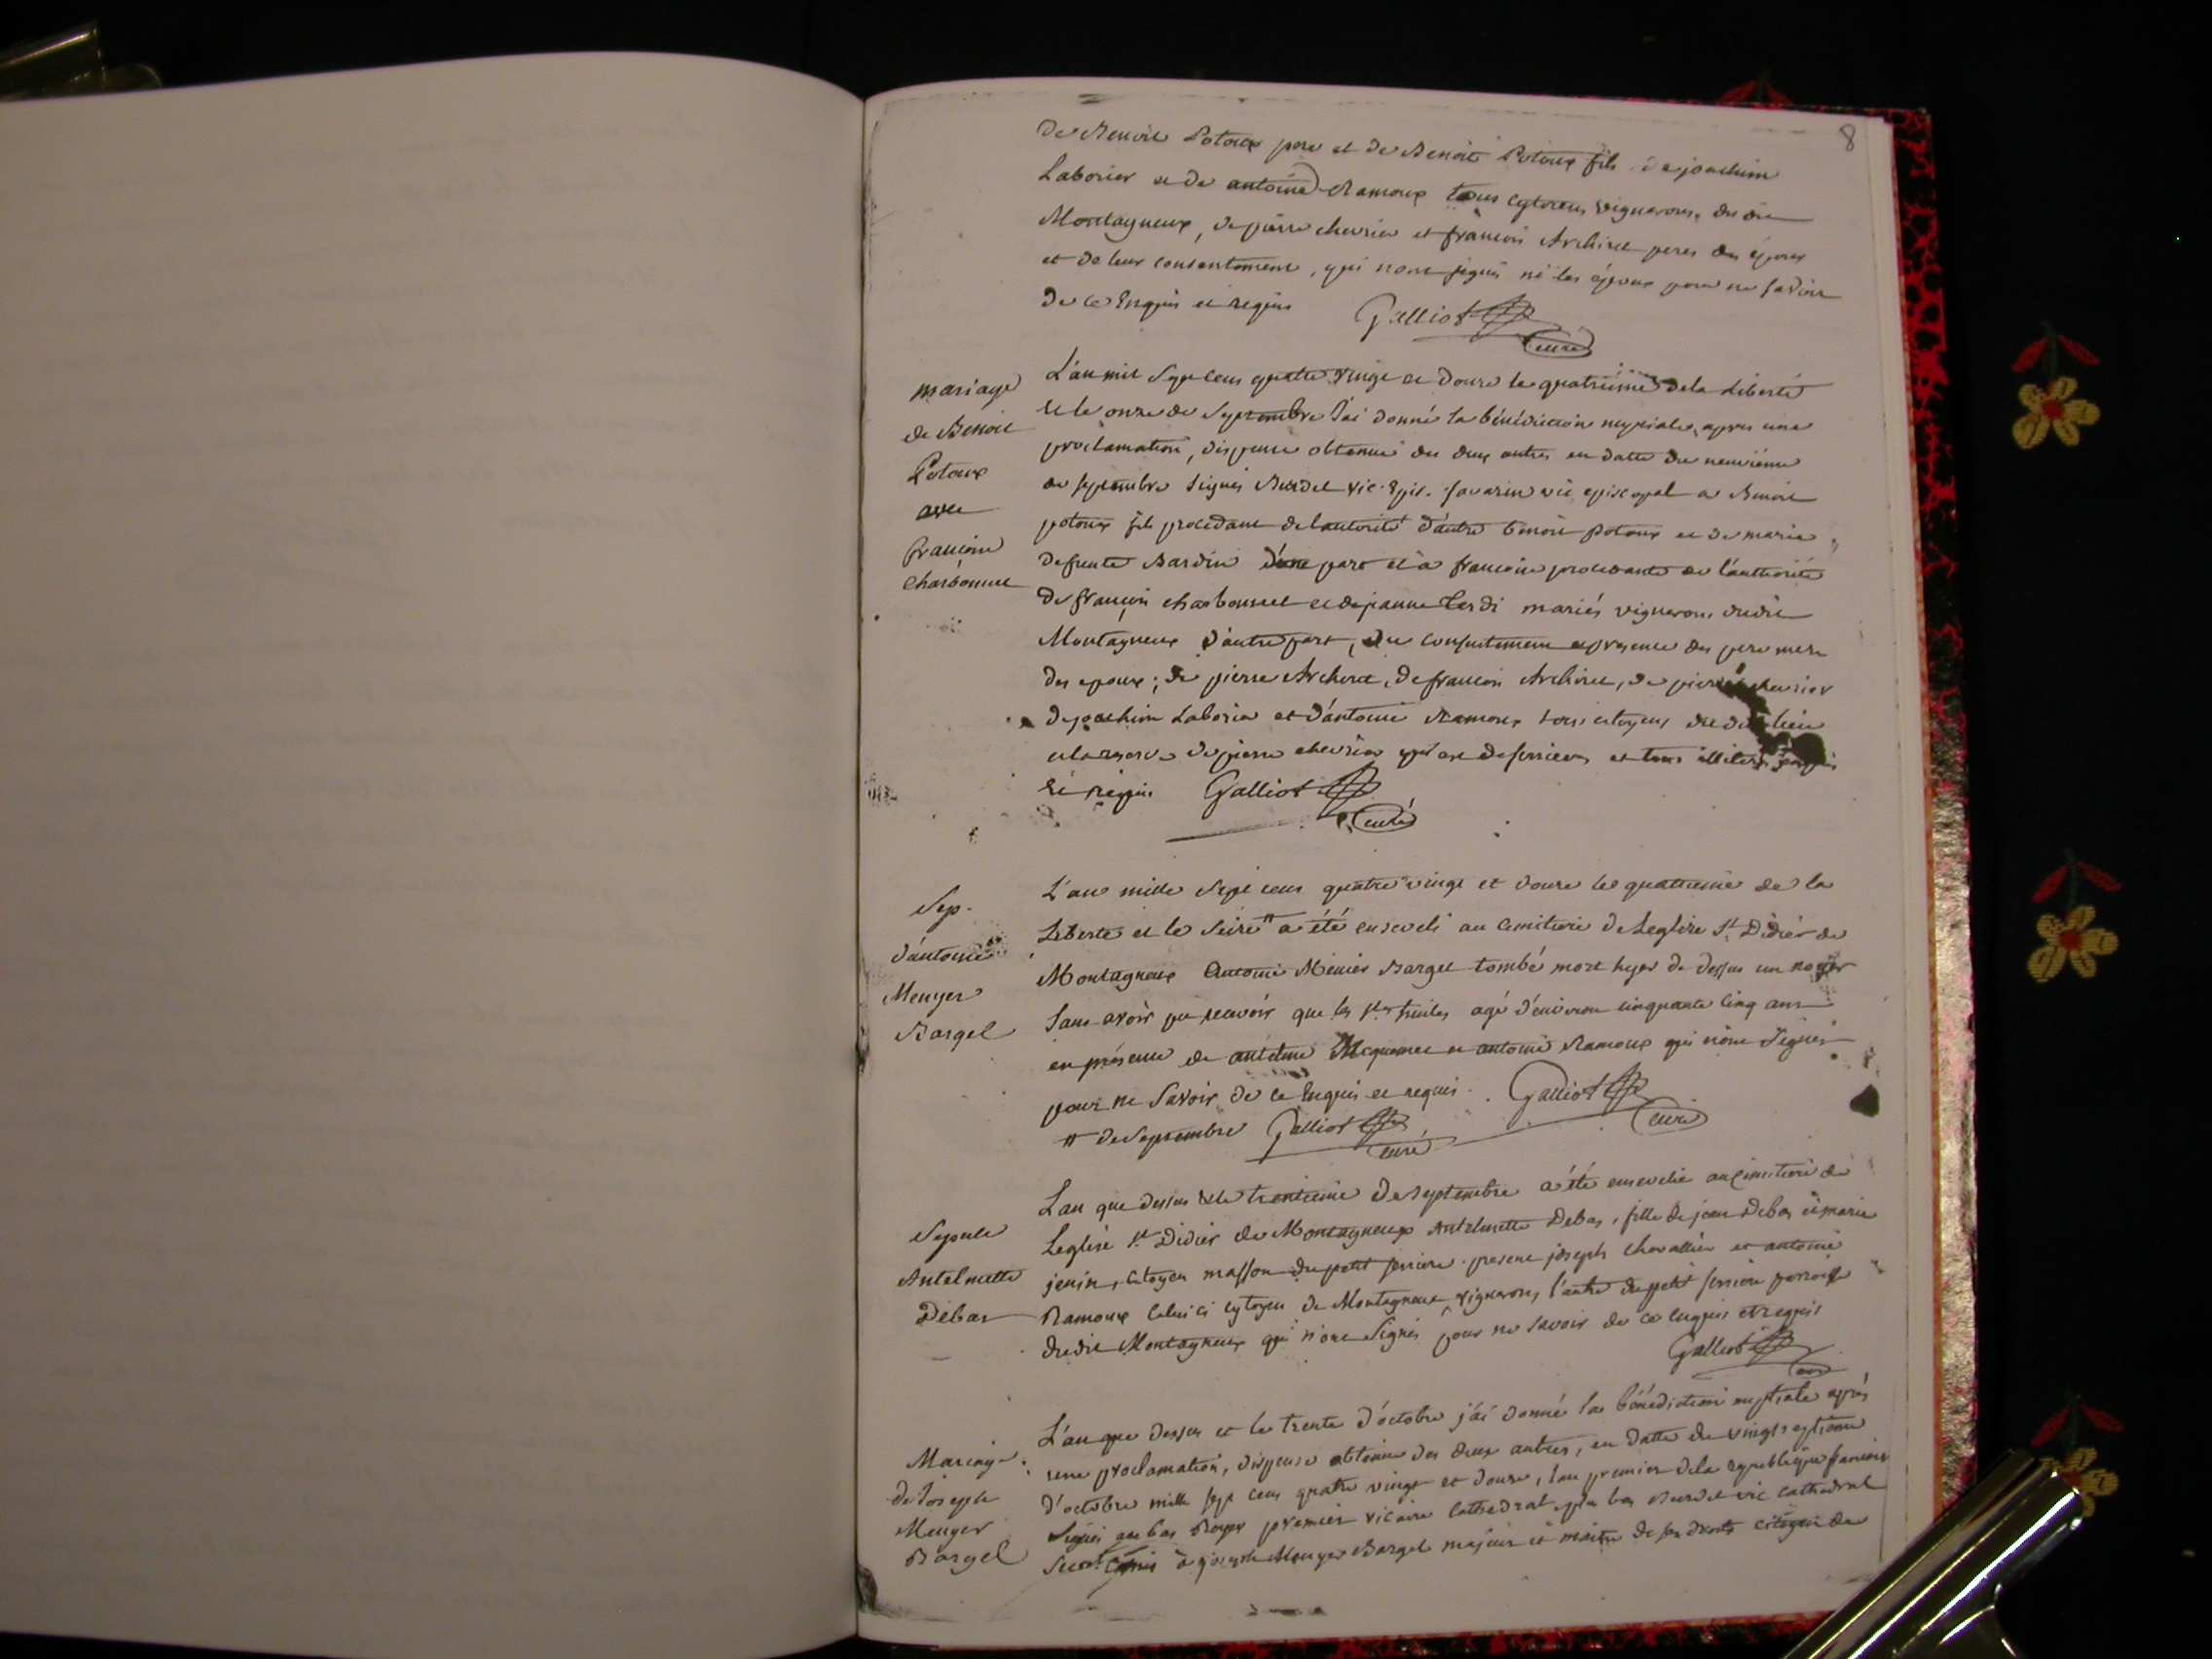 8
de Benoit Potoux pere et de Benoit Potoux fils de joachim
Laborier et de antoine Ramoux tous cytoiens vignerons du dit
Montagneux, de pierre chevrier et francois Archiret peres des époux
et de leur consentement, qui nont signés ni les époux pour ne savoir
de ce Enquis et requis Galliot
curé
mariage
de Benoit
Potoux
avec
francoise
Charbonnet
L'an mil sept cens quatre vingt et douze le quatriéme de la Liberté
et le onze de septembre J'ai donné la bénédiction nuptiale, apres une
proclamation, dispense obtenue des deux autres en datte du neuviéme
de septembre signés Burdet vic. Epis. favarin vic episcopal a Benoit
potoux fils procedant de l'autorité d'autre benoit potoux et de marie
defunte Bardin d'une part et à francoise procedante de l'authorité
de françois charbonnet et de jeanne Tardi mariés vignerons dudit
Montagneux d'autre part, du consentement et presence des pere mere
des epoux; de pierre Archiret, de francois Archiret, de pierre chevrier
de joachim Laborier et d'antoine Ramoux tous citoyens du dit lieu
a la reserve de pierre chevrier qui est de serrieres et tous
et requis Galliot
curé
Sep.
d'antoine
Menyer
Bargel
L'an mille sept cens quatre vingt et douze le quatrieme de la
Liberté et le seize # a été enseveli au cimitiere de Leglise St. Didier de
Montagneux Antoine Ménier Bargel tombé mort hyer de dessus un noyer
sans avoir pu recevoir que les stes huiles agé d'environ cinquante cinq ans
en présence de antelme et antoine Ramoux qui n'ont signés
pour ne savoir de ce Enquis et requis. Galliot
curé
# de septembre Galliot
curé
Sepult
Antelmette
Débas
L'an que dessus et le trentieme de septembre a été ensevelie au cimitiere de
Leglise St. Didier de Montagneux Antelmette Debas, fille de jean Debas et marie
jenin, citoyen masson du petit serriere. present joseph chevallier et antoine
Ramoux celui ci cytoyen de Montagneux, vignerons, l'autre du petit serriere parroisse
dudit Montagneux qui n'ont signés pour ne savoir de ce enquis et requis
Galliot
curé
Mariage
de Joseph
Menyer
Bargel
L'an que dessus et le trente d'octobre j'ai donné la bénédiction nuptiale après
une proclamation, dispense obtenue des deux autres, en datte du vingt septiéme
d'octobre mille sept cens quatre vingt et douze, l'an premier de la republique francoise
signés au bas Royer premier vicaire cathedral plus bas Burdet vic cathedral
à joseph Menyer Bargel majeur et maitre de ses droits citoyen de